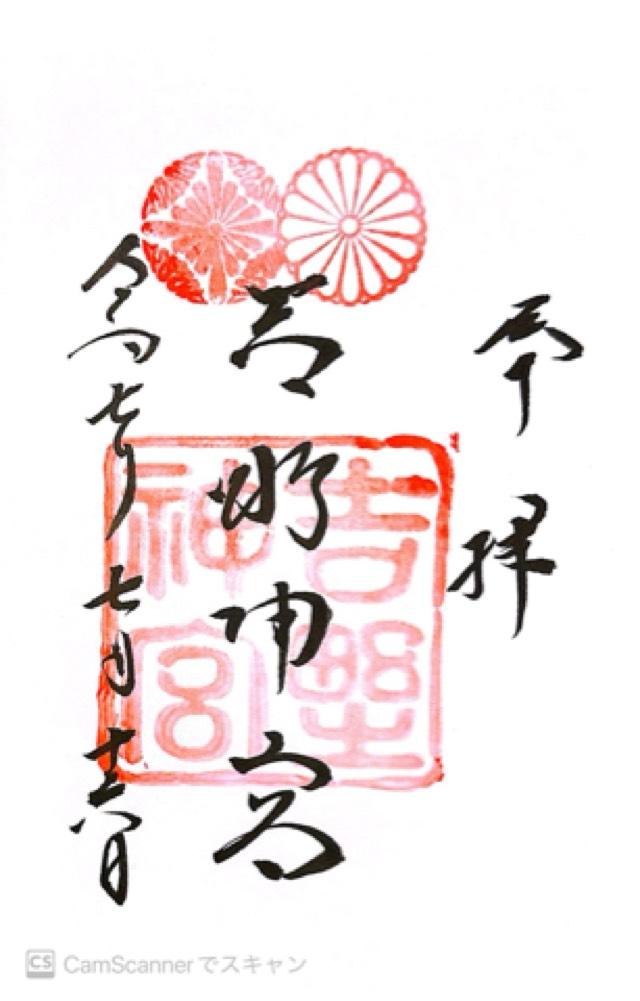 奉拝
吉野神宮
令和七年七月十六日
吉野
神宮
CS CamScannerでスキャン